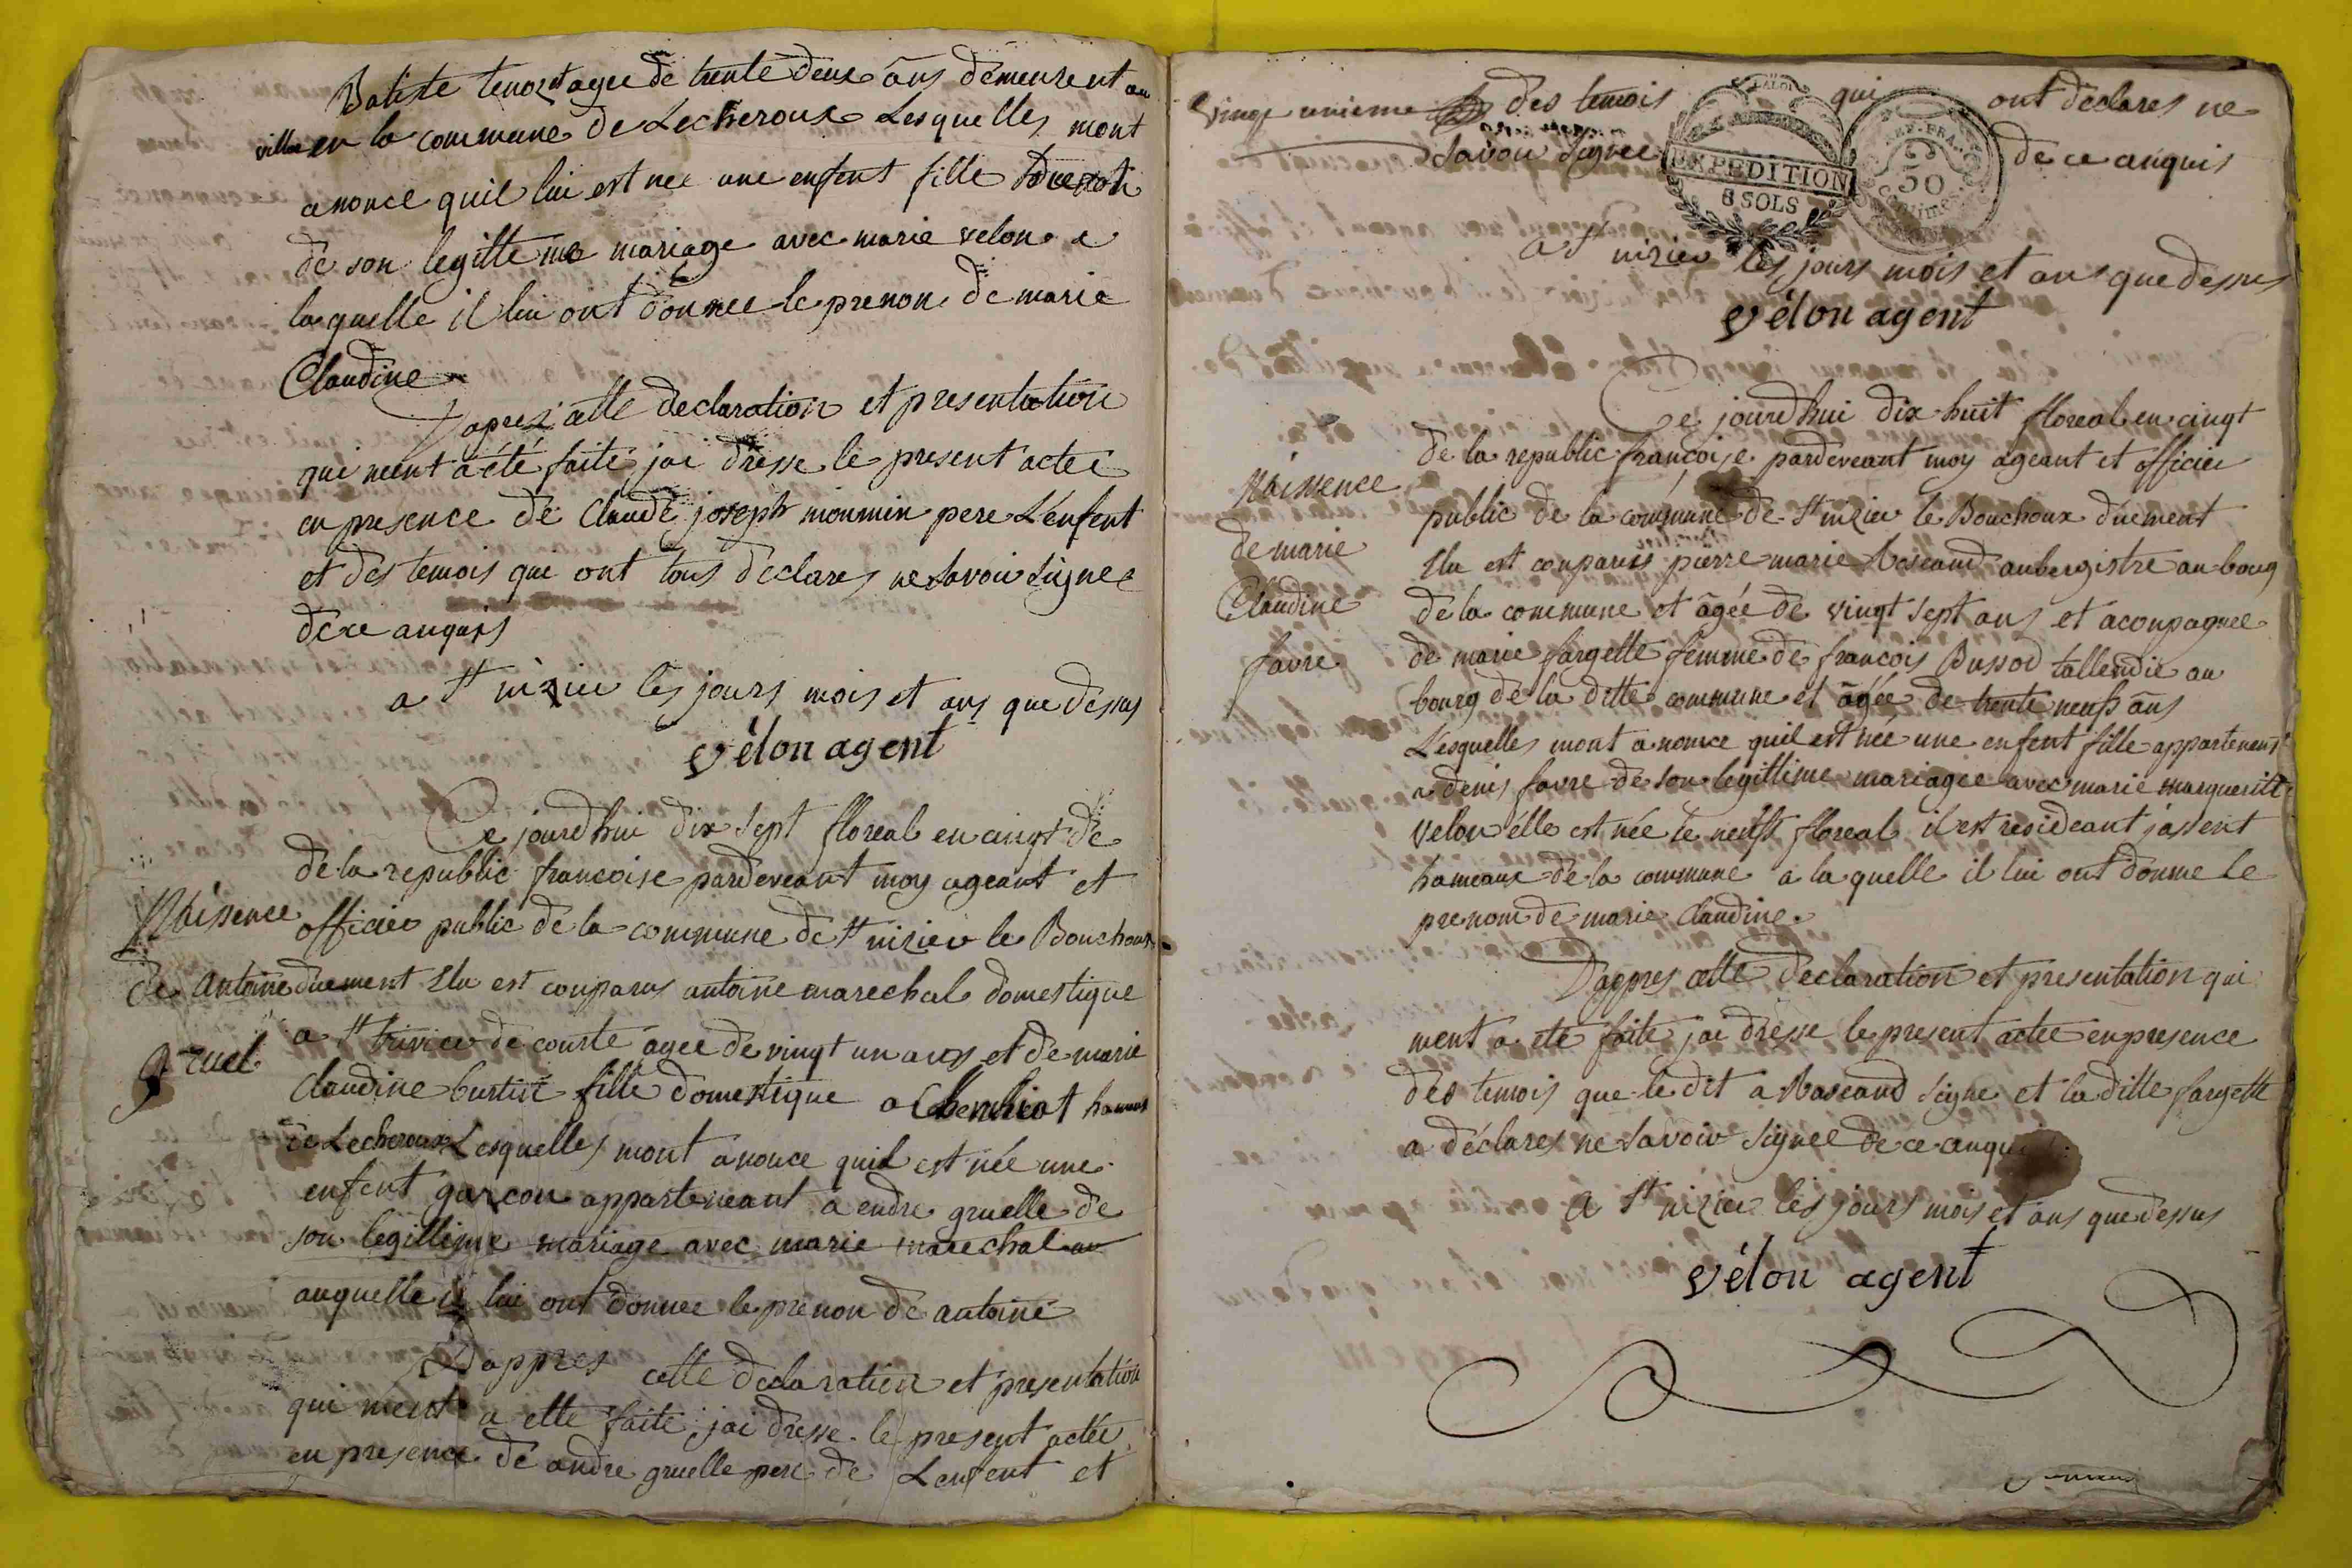 Batiste agee de trente deux ans demeurent au
village en la commune de Lecheroux Lesquelles mont
anonce quil lui est nee une enfent fille
de son legitteme mariage avec marie velon a
laquelle il lui ont donnee le prenon de marie
Claudine
Dapres cette declaration et presentation
qui ment a été faite jai dresse le present acte
en presence de Claude joseph monmin pere Lenfent
et des temois que ont tous declares ne Savoir Signee
de ce anquis
a St nizier les jours mois et ans que dessus
vélon agent
Ce jourdhui dix Sept floreal en cinqt de
de la republic francoise pardeveant moy ageant et
Naissence
officier public de la commune de St nizier le Bouchoux
de Antoine
duement Elu est conparus antoine marechal domestique
gruel
a St trivier de courte agee de vingt un ans et de marie
Claudine burtin fille domestique a
de Lecheroux Lesquelles mont anonce quil est née une
enfent garcon apparteneant a endre gruelle de
son legittime mariage avec marie marechal
auquelle il lui ont donnee le prenon de antoine
Dappres cette declaration et presentation
qui ment a ette faite jai dresse le present actee
en presence de andre gruelle pere de Lenfent et
vingt unieme des temois qui ont declares ne
Savoir Signee de ce anquis
EXPEDITION
8 SOLS
REP. FRA.
50
centimes
a St nizier les jours mois et ans que dessus
vélon agent
Ce jourdhui dix huit floreal en cinqt
de la republic francoise pardeveant moy ageant et officier
Naissence
public de la commune de St nizier le Bouchoux duement
de marie
Elu est conparus pierre marie aubergistre au bourg
Claudine
de la commune et âgée de vingt sept ans et aconpagnee
favre
de marie fargette femme de francois Bussod au
bourg de la ditte commune et âgée de trente neuf ans
Lesquelles mont anonce quil est née une enfent fille appartenent
a denis favre de son legittime mariagee avec marie margueritte
velon elle est née le neuf floreal il est resideant jassent
hameaux de la commune a la quelle il lui ont donne Le
prenom de marie Claudine
Dappres cette declaration et presentation qui
ment a ete faite jai dresse le present actee en presence
des temois que le dit a Signe et la ditte fargette
a déclares ne Savoir Signee de ce anquis
a St nizier les jours mois et ans que dessus
vélon agent